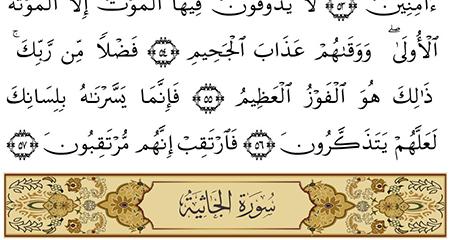 ءَامِنِينَ ۝٥٥ لَا يَذُوقُونَ فِيهَا الْمَوْتَ إِلَّا الْمَوْتَةَ
الْأُولَىٰ ۖ وَوَقَىٰهُمْ عَذَابَ الْجَحِيمِ ۝٥٦ فَضْلًا مِّن رَّبِّكَ ۚ
ذَٰلِكَ هُوَ الْفَوْزُ الْعَظِيمُ ۝٥٧ فَإِنَّمَا يَسَّرْنَٰهُ بِلِسَانِكَ
لَعَلَّهُمْ يَتَذَكَّرُونَ ۝٥٨ فَارْتَقِبْ إِنَّهُم مُّرْتَقِبُونَ ۝٥٩
سُورَةُ الْجَاثِيَةِ